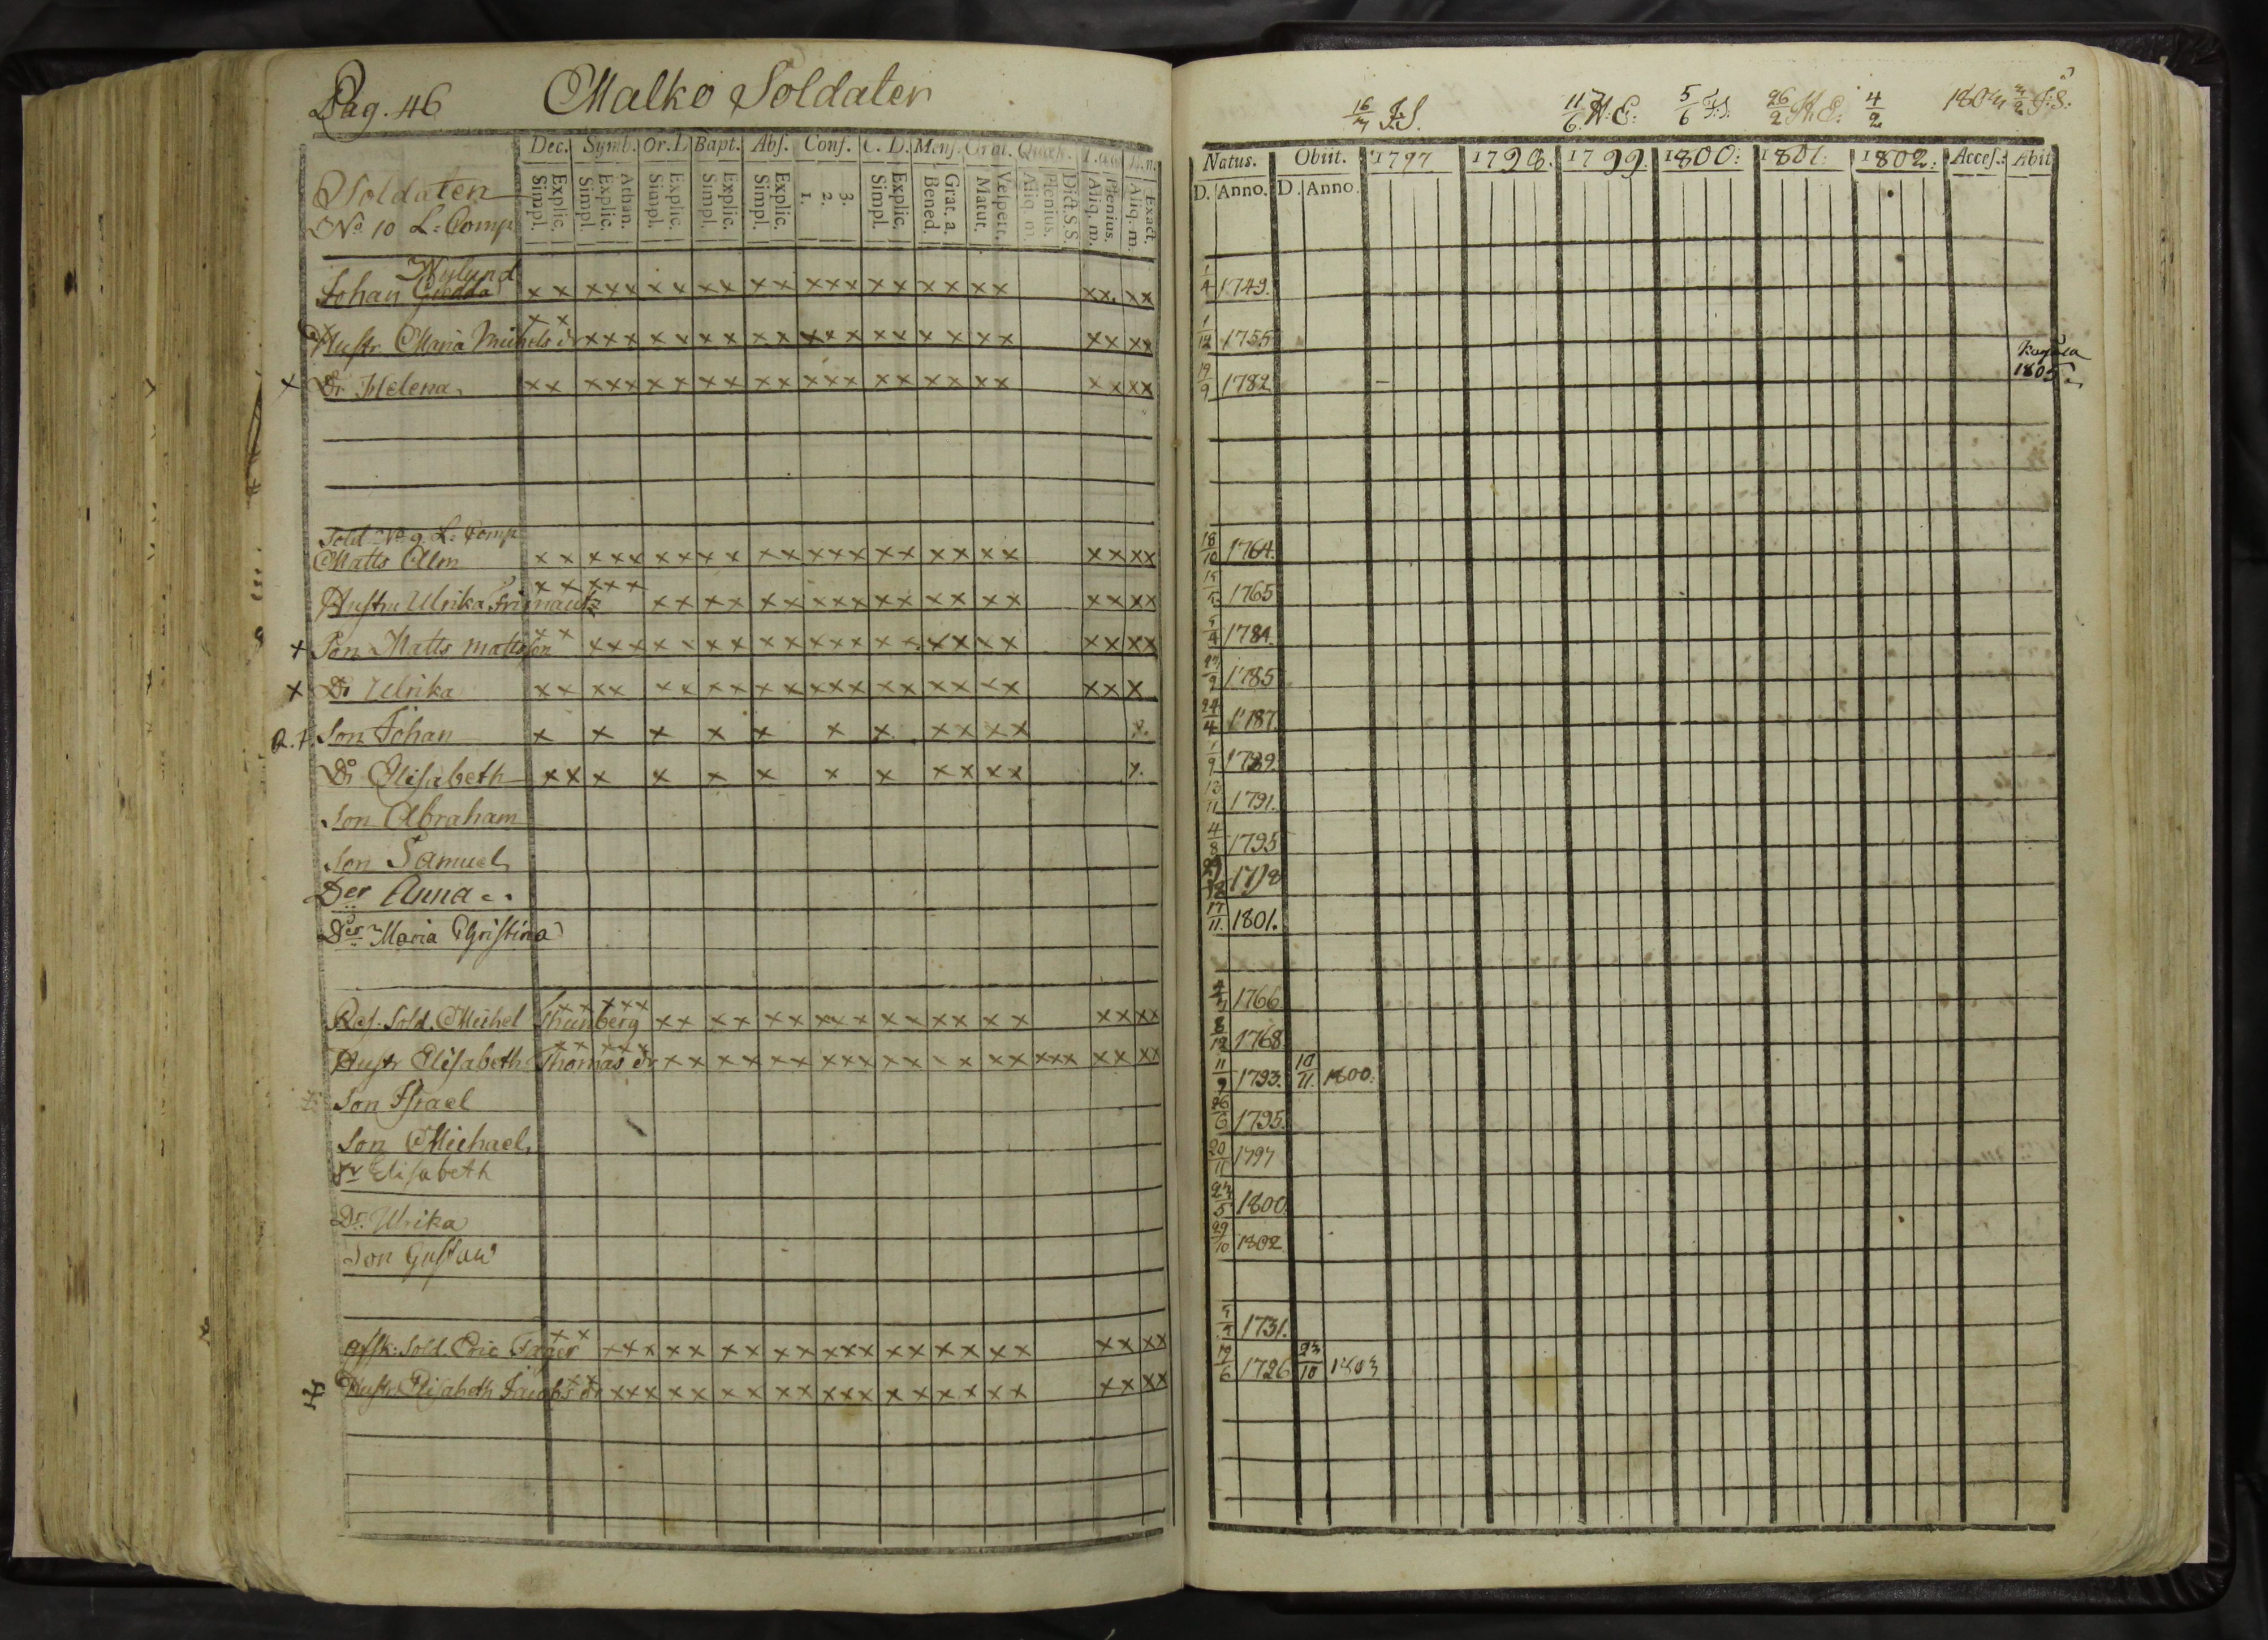 Pag. 46 Malko Soldater
Dec. Symb. Or.D Bapt. Abs. Conf. C. D. Mens. Grat. Quæst.
Explic. Simpl. Athan. Explic. Simpl. Explic. Simpl. Explic. Simpl. Explic. Simpl. 3. 2. 1. Explic. Simpl. Grat. a. Bened. Vespert. Matut. Dict. S.S. Plenius. Aliq. m. Plenius. Aliq. m. Exact. Aliq. m.
Soldaten
No 10 L: Comp
Nylund
Johan Gedda x x x x x x x x x x x x x x x x x x x x x x x x
Hustr. Maria Michels dr x x x x x x x x x x x x x x x x x x x x x x x x
x Dr Helena x x x x x x x x x x x x x x x x x x x x x x x x
Sold No 9 L: Comp
Matts Alm x x x x x x x x x x x x x x x x x x x x x x x x
Hustru Ulrika x x x x x x x x x x x x x x x x x x x x x x x x
x Son Matts Mattsson x x x x x x x x x x x x x x x x x x x x x x x x
x Dr Ulrika x x x x x x x x x x x x x x x x x x x x x x
Son Johan x x x x x x x x x x x x
Dr Elisabeth x x x x x x x x x x x x x
Son Abraham
Son Samuel
Der Anna
Der Maria Christina
Ref. Sold. Michel Thunberg x x x x x x x x x x x x x x x x x x x x x x x x
Hustr Elisabeth Thomas dr x x x x x x x x x x x x x x x x x x x x x x x x x x x
Son Israel
Son Michael
Dr Elisabeth
Dr. Ulrika
Son Gustaw
Afsk: Sold. Eric Jæger x x x x x x x x x x x x x x x x x x x x x x x x
Hustr. Elisabeth Jacobs dr x x x x x x x x x x x x x x x x x x x x x x x x
16/7 J.S. 11/6 H. E: 5/6 J.S. 26/2 H. E: 4/2 1803 3/2 J:S:
Natus. Obiit. 1797 1798. 1799. 1800: 1801: 1802: Acces.: Abit
D. Anno. D. Anno.
1/4 1749.
1/12 1755
19/9 1782 1805
18/10 1764.
1765
5/4 1784.
1785
24/4 1787.
1/9 1789.
13/11 1791.
4/8 1795
1798
17/11 1801.
1766
8/12 1768
11/9 1793. 10/11 1800.
26/6 1795.
20/11 1797
23/5 1800.
29/10 1802
1731.
19/6 1726 23/10 1803